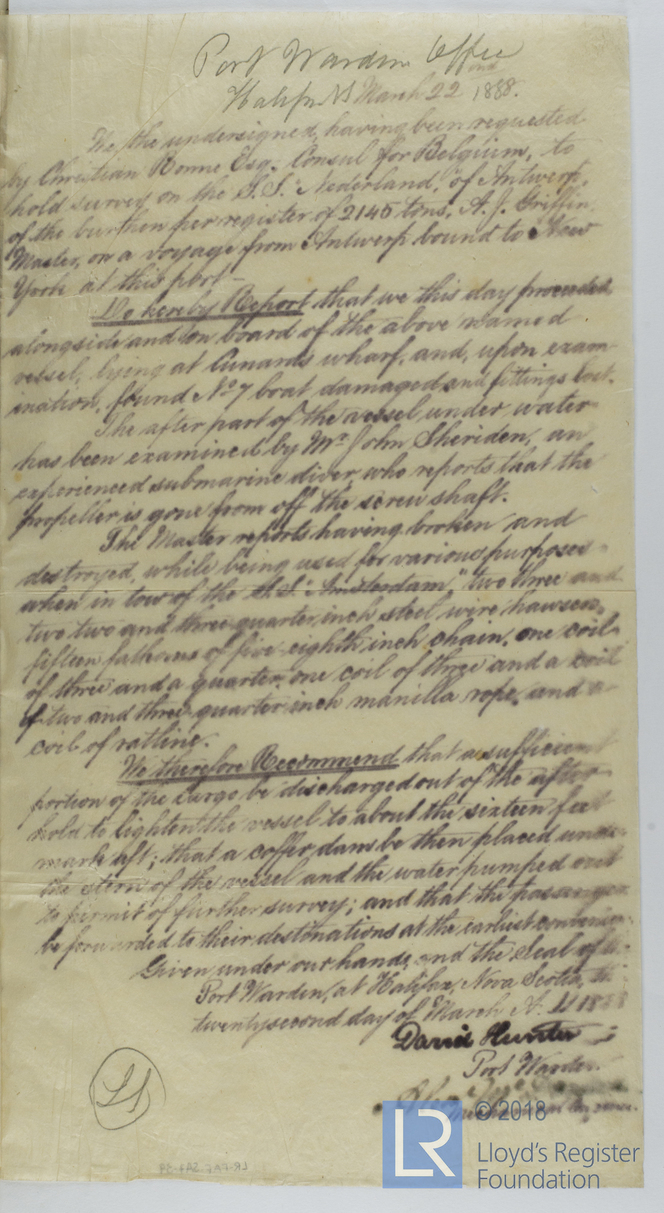 Port Warden Office
Halifax NS March 22nd 1888.
We the undersigned, having been requested
by Christian Ronne Esq. Consul for Belgium, to
hold survey on the S.S. "Nederland," of Antwerp,
of the burthen per register of 2145 tons, A. J. Griffin
Master, on a voyage from Antwerp bound to New
York at this port—
Do hereby Report that we this day proceeded
alongside and on board of the above named
vessel, lying at Cunards wharf, and, upon exam-
ination, found No 7 boat damaged and fittings lost.
The after part of the vessel under water
has been examined by Mr John Sheriden, an
experienced submarine diver, who reports that the
propeller is gone from off the screw shaft.
The Master reports having broken and
destroyed, while being used for various purposes
when in tow of the S.S. "Amsterdam," two three and
two two and three quarter inch steel wire hawsers,
fifteen fathoms of five eighth inch chain, one coil
of three and a quarter, one coil of three and a coil
of two and three quarter inch manilla rope, and a
coil of ratline.
We therefore Recommend that a sufficient
portion of the cargo be discharged out of the after
hold to lighten the vessel to about the sixteen feet
mark aft; that a coffer dam be then placed under
the stern of the vessel and the water pumped out
to permit of further survey; and that the passengers
be forwarded to their destinations at the earliest convenience.
Given under our hands and the Seal of the
Port Warden, at Halifax, Nova Scotia, the
twenty second day of March A.D 1888
David Hunter
Port Warden.
LS
PE-FAZ-7A7-93
© 2018
LR
Lloyd's Register
Foundation